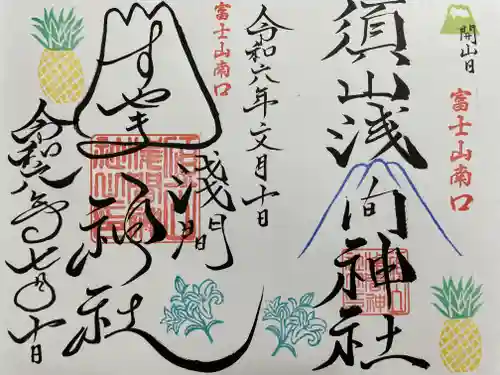 開山日
富士山南口
須山浅間神社
令和六年文月十日
富士山南口
すやま
浅間
神社
令和六年七月十日